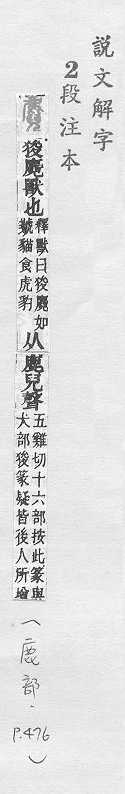 說文解字
2段注本
麑
狻麑獸也
釋獸曰狻麑如
虦貓食虎豹
从鹿兒聲
五雞切十六部按此篆與
犬部狻篆疑皆後人所增
(鹿部．
p.476)